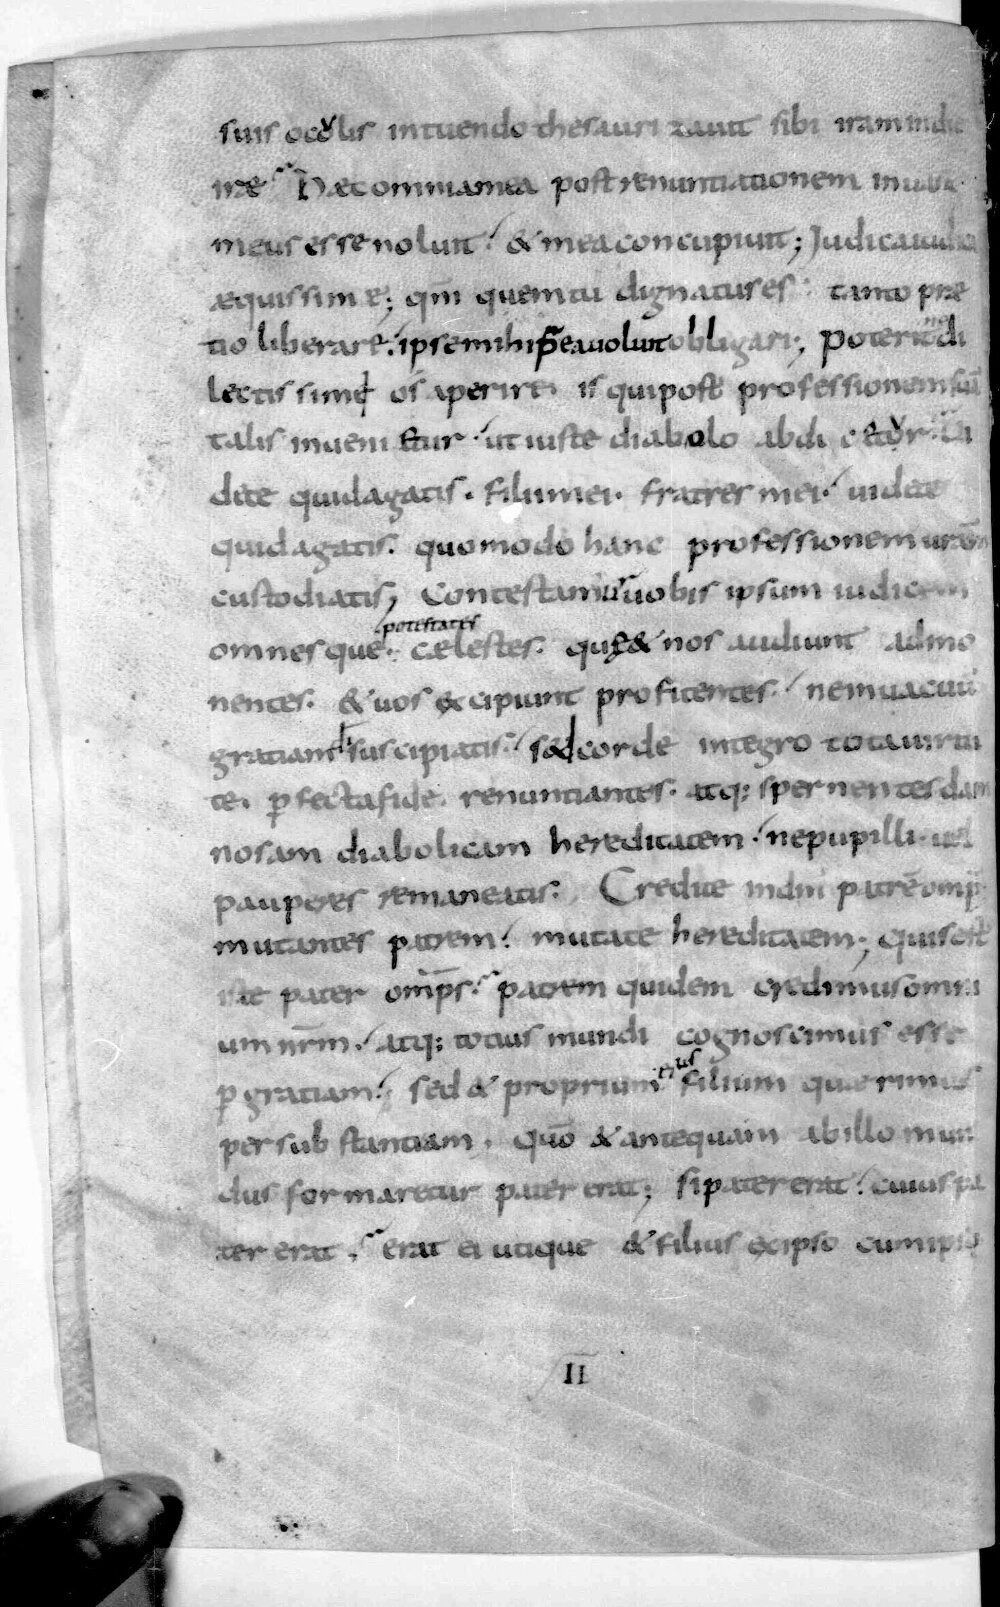 suis oculis intuendo thesaurizauit sibi iram in die
irae Haec omnia mea post renuntiationem inuasit
meus esse noluit. & mea concupiuit; Judica iudica
aequissime; qm̄ quem tu dignatus es tanto prae
tio liberare. ipse mihi p̄ea uoluit obligari; Poterit ne di
lectissimi os aperire is qui post professionem suā
talis inuenietur. ut iuste diabolo abdicetur. Ui
dete quid agatis. filii mei. fratres mei. uidete
quid agatis. quomodo hanc professionem urām
custodiatis; Contestamur uobis ipsum iudicem
omnesque. potestates caelestes. quę & nos audiunt admo
nentes. & uos excipiunt profitentes. ne in uacuū
gratiam dī suscipiatis. sed corde integro tota uirtu
te. p̱fecta fide. renuntiantes. atq: spernentes dam
nosam diabolicam hereditatem. ne pupilli. uel
pauperes remaneatis. Credite in dm̄ patrē omp̄
mutantes patrem. mutate hereditatem; quis est
iste pater omp̄s. patrem quidem credimus omni
um nr̄m. atq: totius mundi cognoscimus esse
p̱ gratiam. sed & proprium eius filium quaerimus
per substantiam. quō & antequam ab illo mun
dus formaretur pater erat; si pater erat. cuius pa
ter erat. erat ei utique & filius ex ipso cum ipso
II